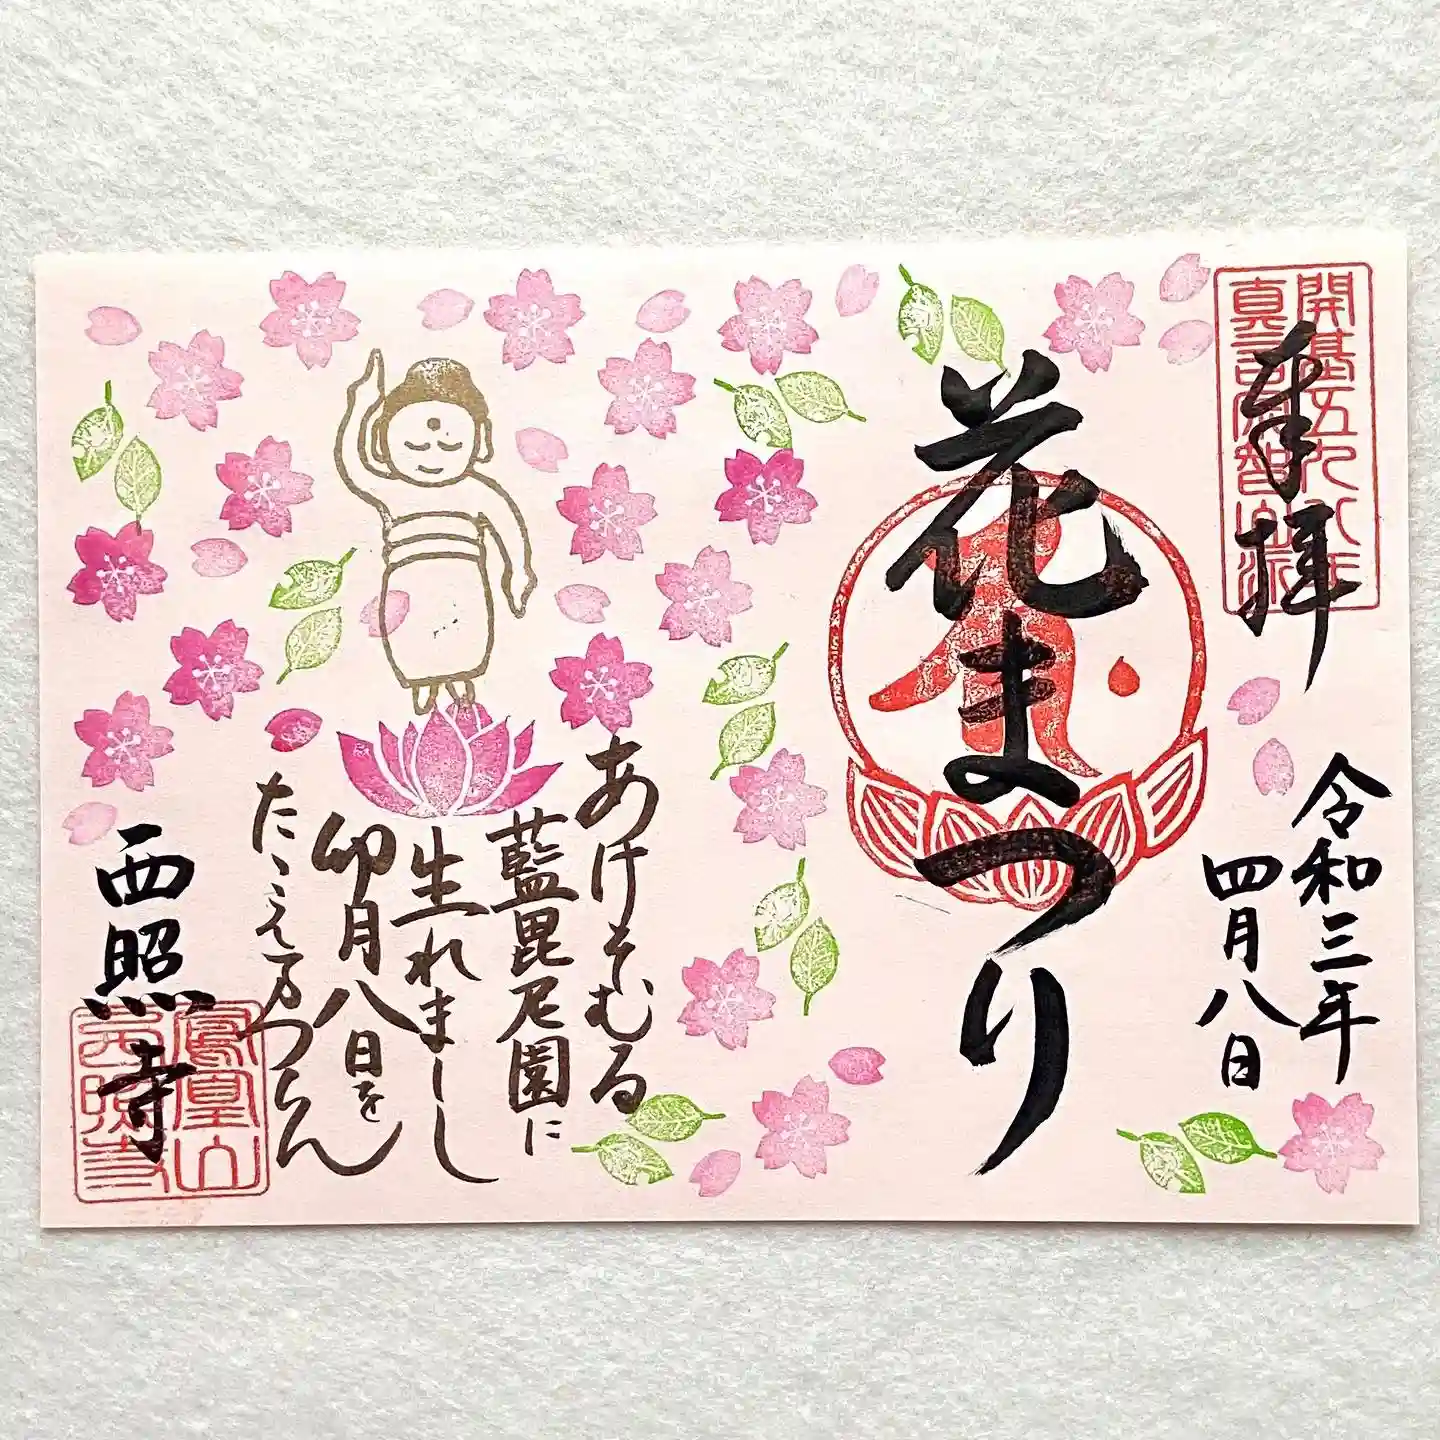 開基五九八年
真言宗智山派
奉拝
令和三年
四月八日
花まつり
あけそむる
藍毘尼園に
生れましし
卯月八日を
たゝえまつらん
西照寺
鳳凰山
西照寺